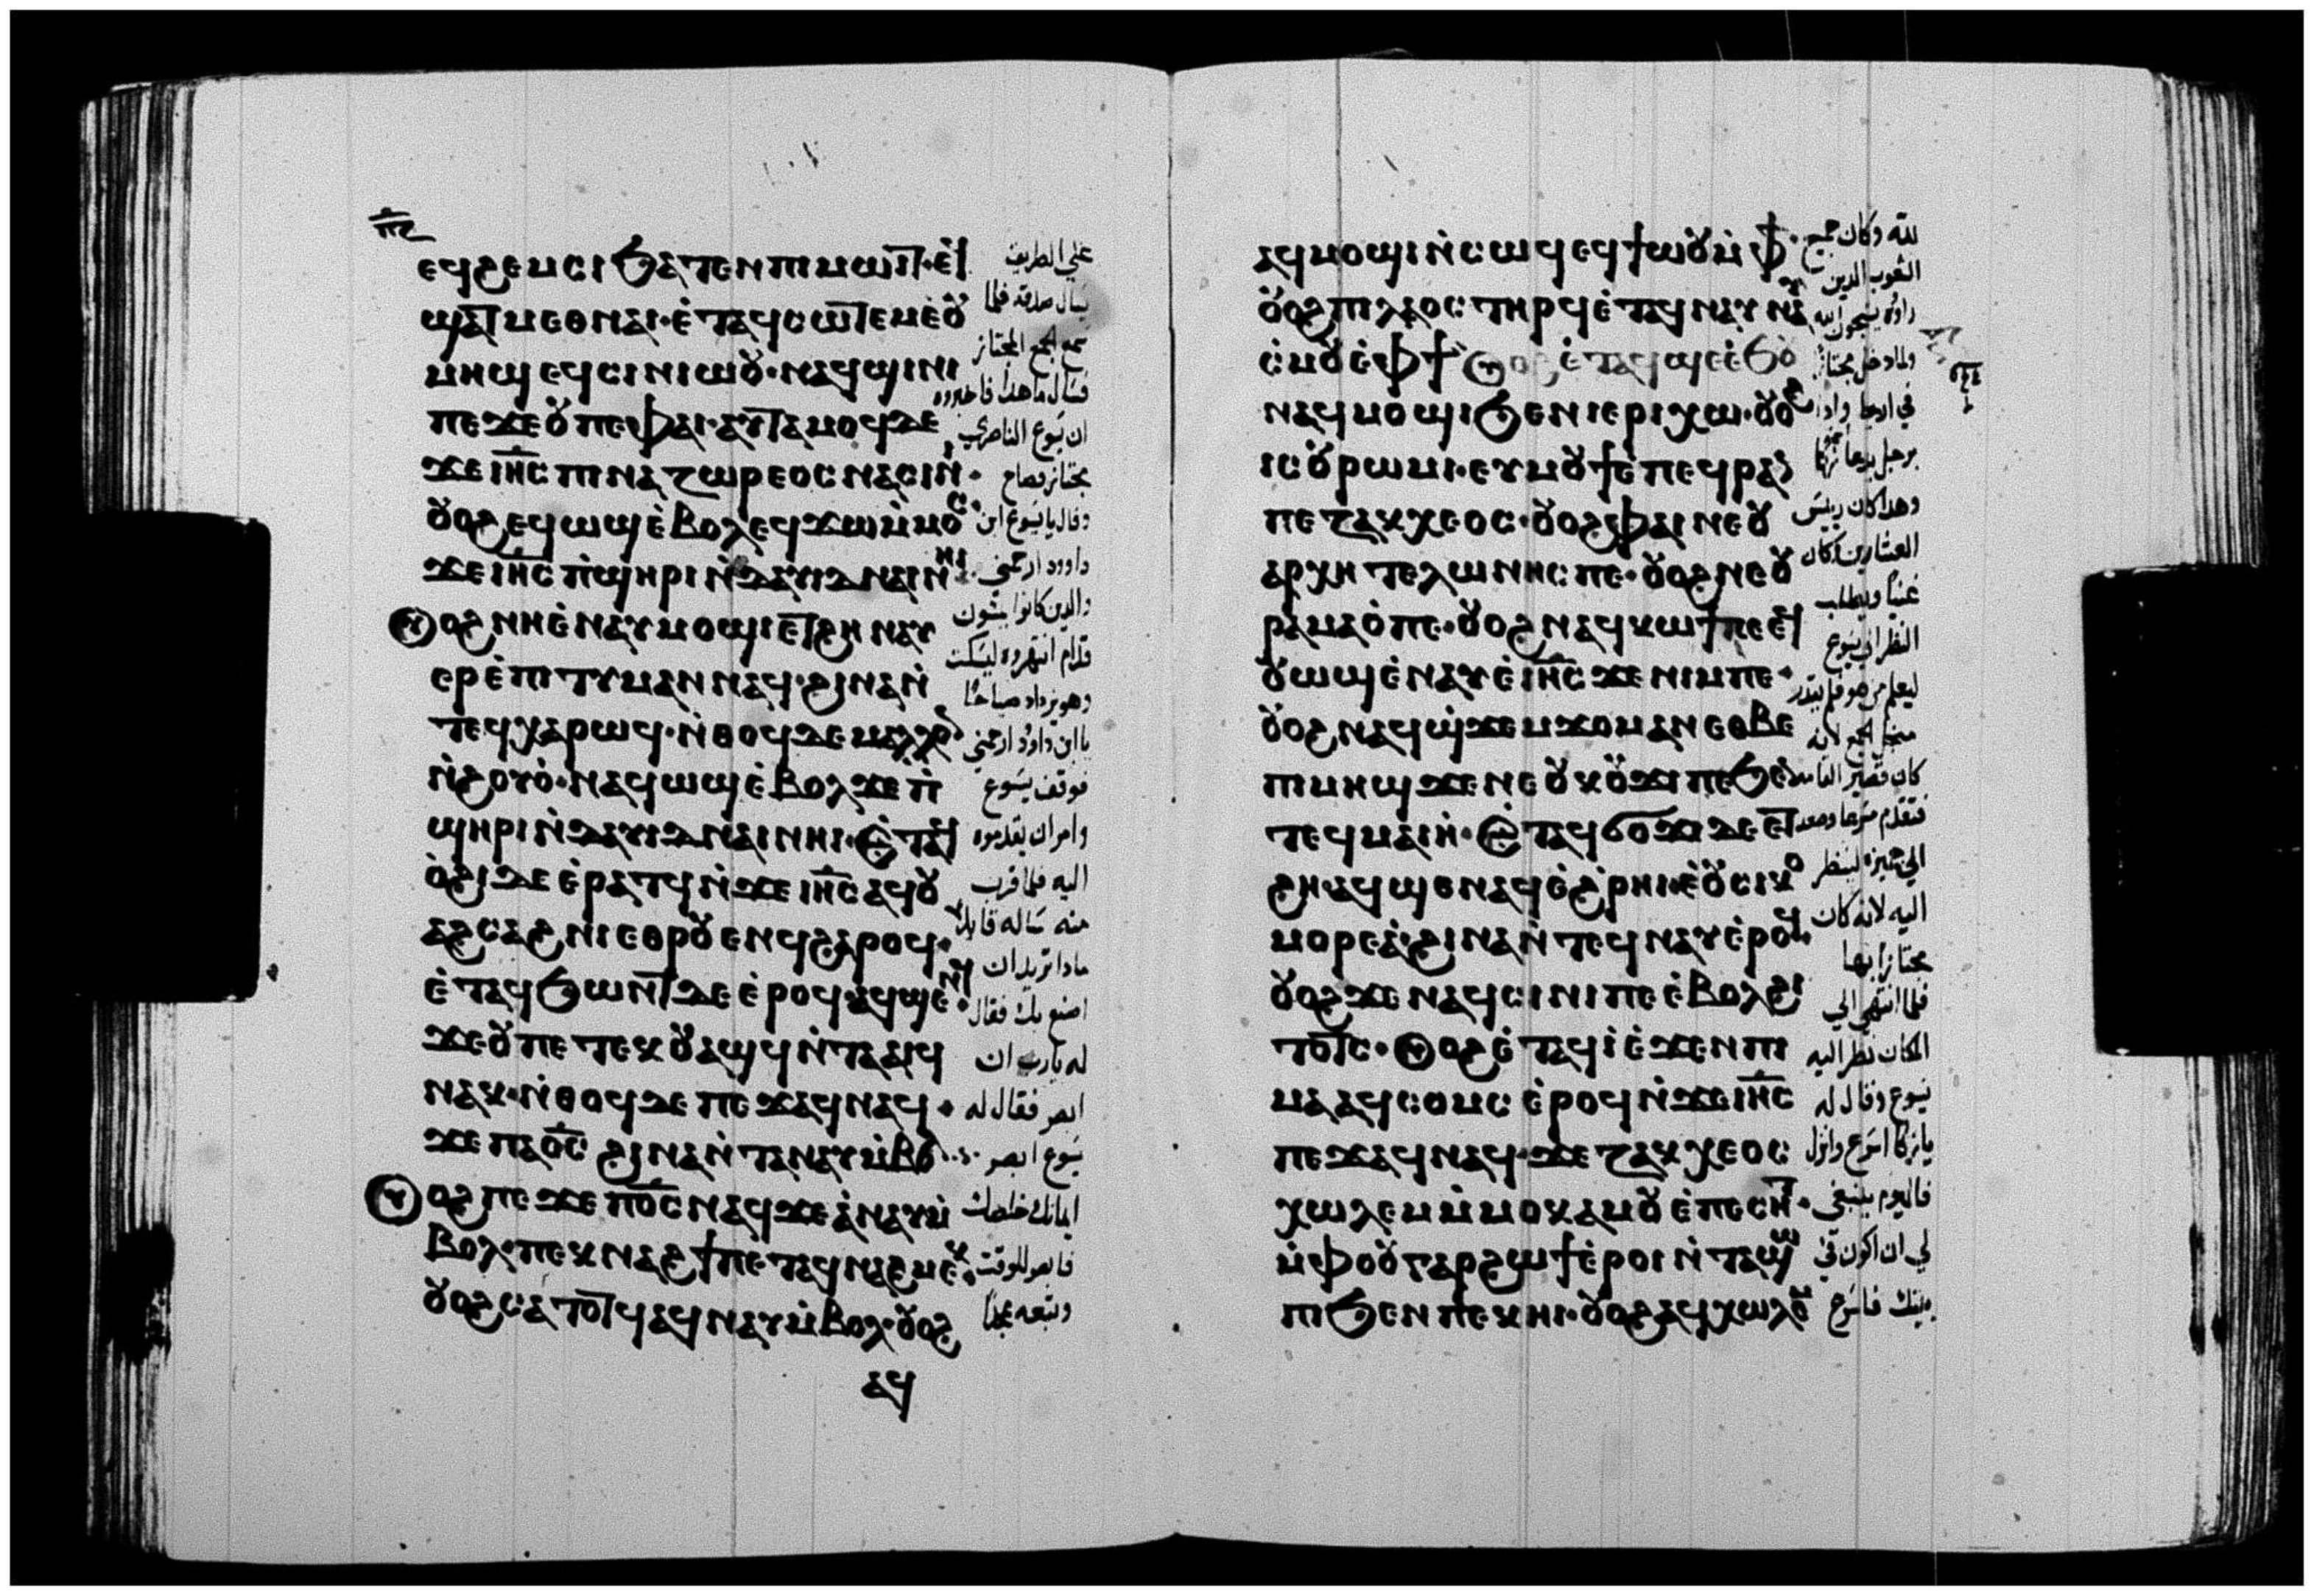 ⲡ̅ⲋ̅
ⲉϥϩⲉⲙⲥⲓ ϧⲁⲧⲉⲛ ⲡⲓⲙⲱⲓⲧ· ⲉϥ
ϣⲁⲧ ⲙⲉⲑⲛⲁⲓ· ⲉ̀ⲧⲁϥⲥⲱⲧⲉⲙ ⲉ̀ⲟⲩ
ⲙⲏϣ ⲉϥⲥⲓⲛⲓⲱⲟⲩ· ⲛⲁϥϣⲓⲛⲓ
ⲡⲉ ϫⲉ ⲟⲩ ⲡⲉ ⲫⲁⲓ· ⲁⲩⲧⲁⲙⲟϥ ⲇⲉ
ϫⲉ ⲓⲏ̅ⲥ̅ ⲡⲓⲛⲁⲍⲱⲣⲉⲟⲥ ⲛⲁⲥⲓⲛⲓ·
ⲟⲩⲟϩ ⲉϥⲱϣ ⲉ̀ⲃⲟⲗ ⲉϥϫⲱ ⲙ̀ⲙⲟⲥ
ϫⲉ ⲓⲏ̅ⲥ̅ ⲡ̀ϣⲏⲣⲓ ⲛ̀ⲇⲁⲩⲓⲇ ⲛⲁⲓ ⲛⲏⲓ·
ⲟⲩⲟϩ ⲛⲏ ⲉ̀ⲛⲁⲩⲙⲟϣⲓ ⲉⲧϩⲏ ⲛⲁⲩ
ⲉⲣⲉ̀ⲡⲓⲧⲩⲙⲁⲛ ⲛⲁϥ· ϩⲓⲛⲁ ⲛ̀
ⲧⲉϥⲭⲁⲣⲱϥ· ⲛ̀ⲑⲟϥ ⲇⲉ ⲙⲁⲗⲗⲟⲛ
ⲛ̀ϩⲟⲩⲟ̀· ⲛⲁϥⲱϣ ⲉ̀ⲃⲟⲗ ϫⲉ ⲡ̀
ϣⲏⲣⲓ ⲛ̀ⲇⲁⲩⲓⲇ ⲛⲁⲓ ⲛⲏⲓ· ⲉ̀ⲧⲁϥ
ⲟ̀ϩⲓ ⲇⲉ ⲉ̀ⲣⲁⲧϥ ⲛ̀ϫⲉ ⲓⲏ̅ⲥ̅ ⲁϥⲟⲩ
ⲁϩⲥⲁϩⲛⲓ ⲉⲑⲣⲟⲩⲉⲛϥ ϩⲁⲣⲟϥ·
ⲉ̀ⲧⲁϥϧⲱⲛⲧ ⲇⲉ ⲉ̀ⲣⲟϥ ⲁϥϣⲉⲛϥ·
ϫⲉ ⲟⲩ ⲡⲉⲧⲉⲕⲟⲩⲁϣϥ ⲛ̀ⲧⲁⲁⲓϥ
ⲛⲁⲕ· ⲛ̀ⲑⲟϥ ⲇⲉ ⲡⲉϫⲁϥ ⲛⲁϥ·
ϫⲉ ⲡⲁⲟ̅ⲥ̅ ϩⲓⲛⲁ ⲛ̀ⲧⲁⲛⲁⲩ ⲙ̀ⲃⲟⲗ
ⲟⲩⲟϩ ⲡⲉϫⲉ ⲡⲟ̅ⲥ̅ ⲛⲁϥ ϫⲉ ⲁ̀ⲛⲁⲩ ⲙ̀
ⲃⲟⲗ· ⲡⲉⲕⲛⲁϩϯ ⲡⲉⲧⲁϥⲛⲁϩⲙⲉⲕ·
ⲟⲩⲟϩ ⲥⲁⲧⲟⲧϥ ⲁϥⲛⲁⲩ ⲙ̀ⲃⲟⲗ· ⲟⲩⲟϩ
ⲁϥ
علي الطريق
يسال صدقه فلما
سمع الجمع المجتاز
فسال ما هذا فاخبروه
ان يسوع الناصري
مجتاز فصاح
وقال يا يسوع ابن
داوود ارحمني
والذين كانوا يمشون
قدام انتهروه ليسكت
وهو يزداد صياحًا
يا ابن داوود ارحمني
فوقف يسوع
وامر ان يقدموه
اليه فلما قرب
منه ساله قايلا
ماذا تريد ان
اصنع بك فقال
له يارب ان
ابصر فقال له
يسوع ابصر
ايمانك خلصك
فابصر للوقت
وتبعه مجدًا
ⲁϥⲙⲟϣⲓ ⲛ̀ⲥⲱϥ ⲉϥϯⲱⲟⲩ ⲙ̀ⲫϯ·
ⲟⲩⲟϩ ⲡⲓⲗⲁⲟⲥ ⲧⲏⲣϥ ⲉ̀ⲧⲁϥⲛⲁⲩ ⲛⲁϥ
ⲥ̀ⲙⲟⲩ ⲉ̀ⲫϯ· ⲟⲩⲟϩ ⲉ̀ⲧⲁϥϣⲉ ⲉ̀ϧⲟⲩⲛ
ⲛⲁϥⲙⲟϣⲓ ϧⲉⲛ ⲓⲉⲣⲓⲭⲱ· ⲟⲩⲟϩ
ⲓⲥ ⲟⲩⲣⲱⲙⲓ· ⲉⲩⲙⲟⲩϯ ⲉ̀ⲡⲉϥⲣⲁⲛ
ϫⲉ ⲍⲁⲕⲭⲉⲟⲥ· ⲟⲩⲟϩ ⲫⲁⲓ ⲛⲉ ⲟⲩ
ⲁⲣⲭⲏⲧⲉⲗⲱⲛⲏⲥ ⲡⲉ· ⲟⲩⲟϩ ⲛⲉ ⲟⲩ
ⲣⲁⲙⲁⲟ̀ ⲡⲉ· ⲟⲩⲟϩ ⲛⲁϥⲕⲱϯ ⲡⲉ ⲉϥ
ⲟⲩⲱϣ ⲉ̀ⲛⲁⲩ ⲉ̀ⲓⲏ̅ⲥ̅ ϫⲉ ⲛⲓⲙ ⲡⲉ·
ⲟⲩⲟϩ ⲛⲁϥϣ̀ϫⲉⲙϫⲟⲙ ⲁⲛ ⲉⲑⲃⲉ
ⲡⲓⲙⲏϣ ϫⲉ ⲛⲉ ⲟⲩⲕⲟⲩϫⲓ ⲡⲉ ϧⲉⲛ
ⲧⲉϥⲙⲁⲓⲏ̀· ⲉ̀ⲧⲁϥϭⲟϫⲓ ⲇⲉ ⲉⲧ
ϩⲏ ⲁϥϣⲉⲛⲁϥ ⲉ̀ϩ̀ⲣⲏⲓ ⲉ̀ⲟⲩⲥⲓⲕⲟ
ⲙⲟⲣⲉⲁ· ϩⲓⲛⲁ ⲛ̀ⲧⲉϥⲛⲁⲩ ⲉ̀ⲣⲟϥ·
ⲟⲩⲟϩ ϫⲉ ⲛⲁϥⲥⲓⲛⲓ ⲡⲉ ⲉ̀ⲃⲟⲗ ϩⲓ
ⲧⲟⲧⲥ· ⲟⲩⲟϩ ⲉ̀ⲧⲁϥⲓ̀ ⲉ̀ϫⲉⲛ ⲡⲓ
ⲙⲁ ⲁϥⲥⲟⲙⲥ ⲉ̀ⲣⲟϥ ⲛ̀ϫⲉ ⲓⲏ̅ⲥ̅
ⲡⲉϫⲁϥ ⲛⲁϥ· ϫⲉ ⲍⲁⲕⲭⲉⲟⲥ
ⲭⲱⲗⲉⲙ ⲙ̀ⲙⲟⲕ ⲁⲙⲟⲩ ⲉ̀ⲡⲉⲥⲏⲧ·
ⲙ̀ⲫⲟⲟⲩ ⲅⲁⲣ ϩⲱϯ ⲉ̀ⲣⲟⲓ ⲛ̀ⲧⲁϣⲱ
ⲡⲓ ϧⲉⲛ ⲡⲉⲕⲏⲓ· ⲟⲩⲟϩ ⲁϥⲭⲱⲗⲉⲙ
لله وكان جميع
الشعوب الذين
راوه يسبحون الله
ولما دخل مجتاز
في اريحا واذا
برجل يدعا زكا
وهذا كان رييس
العشارين وكان
غنيًا ويطلب
النظر الي يسوع
ليعلم من هو فلم يقدر
من الجمع لانه
كان قصير القامه
فتقدم مسرعا وصعد
الي جميزه لينظر
اليه لانه كان
مجتازا بها
فلما انتهي الي
المكان نظر اليه
يسوع وقال له
يا زكا اسرع وانزل
فاليوم ينبغي
لي ان اكون في
بيتك فاسرع